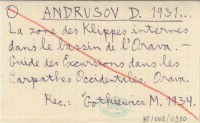 ANDRUSOV D. 1931...
La zone des Klippes internes
dans le bassin de l'Orava. –
Guide des Excursions dans les
Carpathes Occidentales. Orava.
Rec.: Gotkiewicz M. 1934.